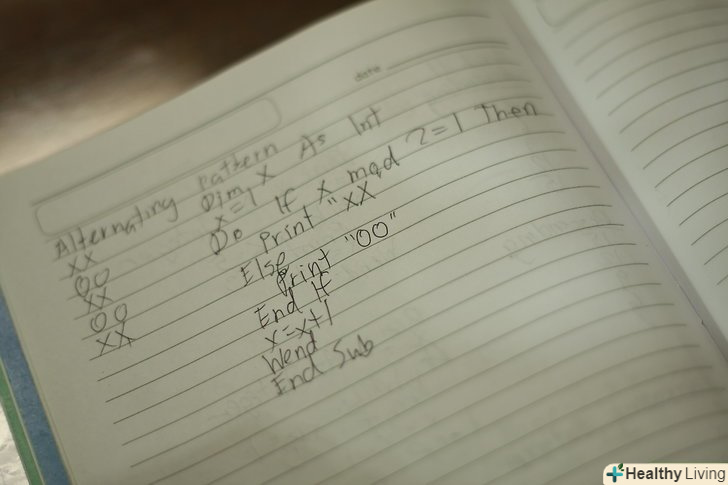 date
Alternating pattern
XX
OO
XX
OO
XX
Dim X As Int
x=1
Do If x mod 2=1 Then
Print "XX
Else
Print "OO"
End If
x=x+1
Wend
End Sub
Healthy Living